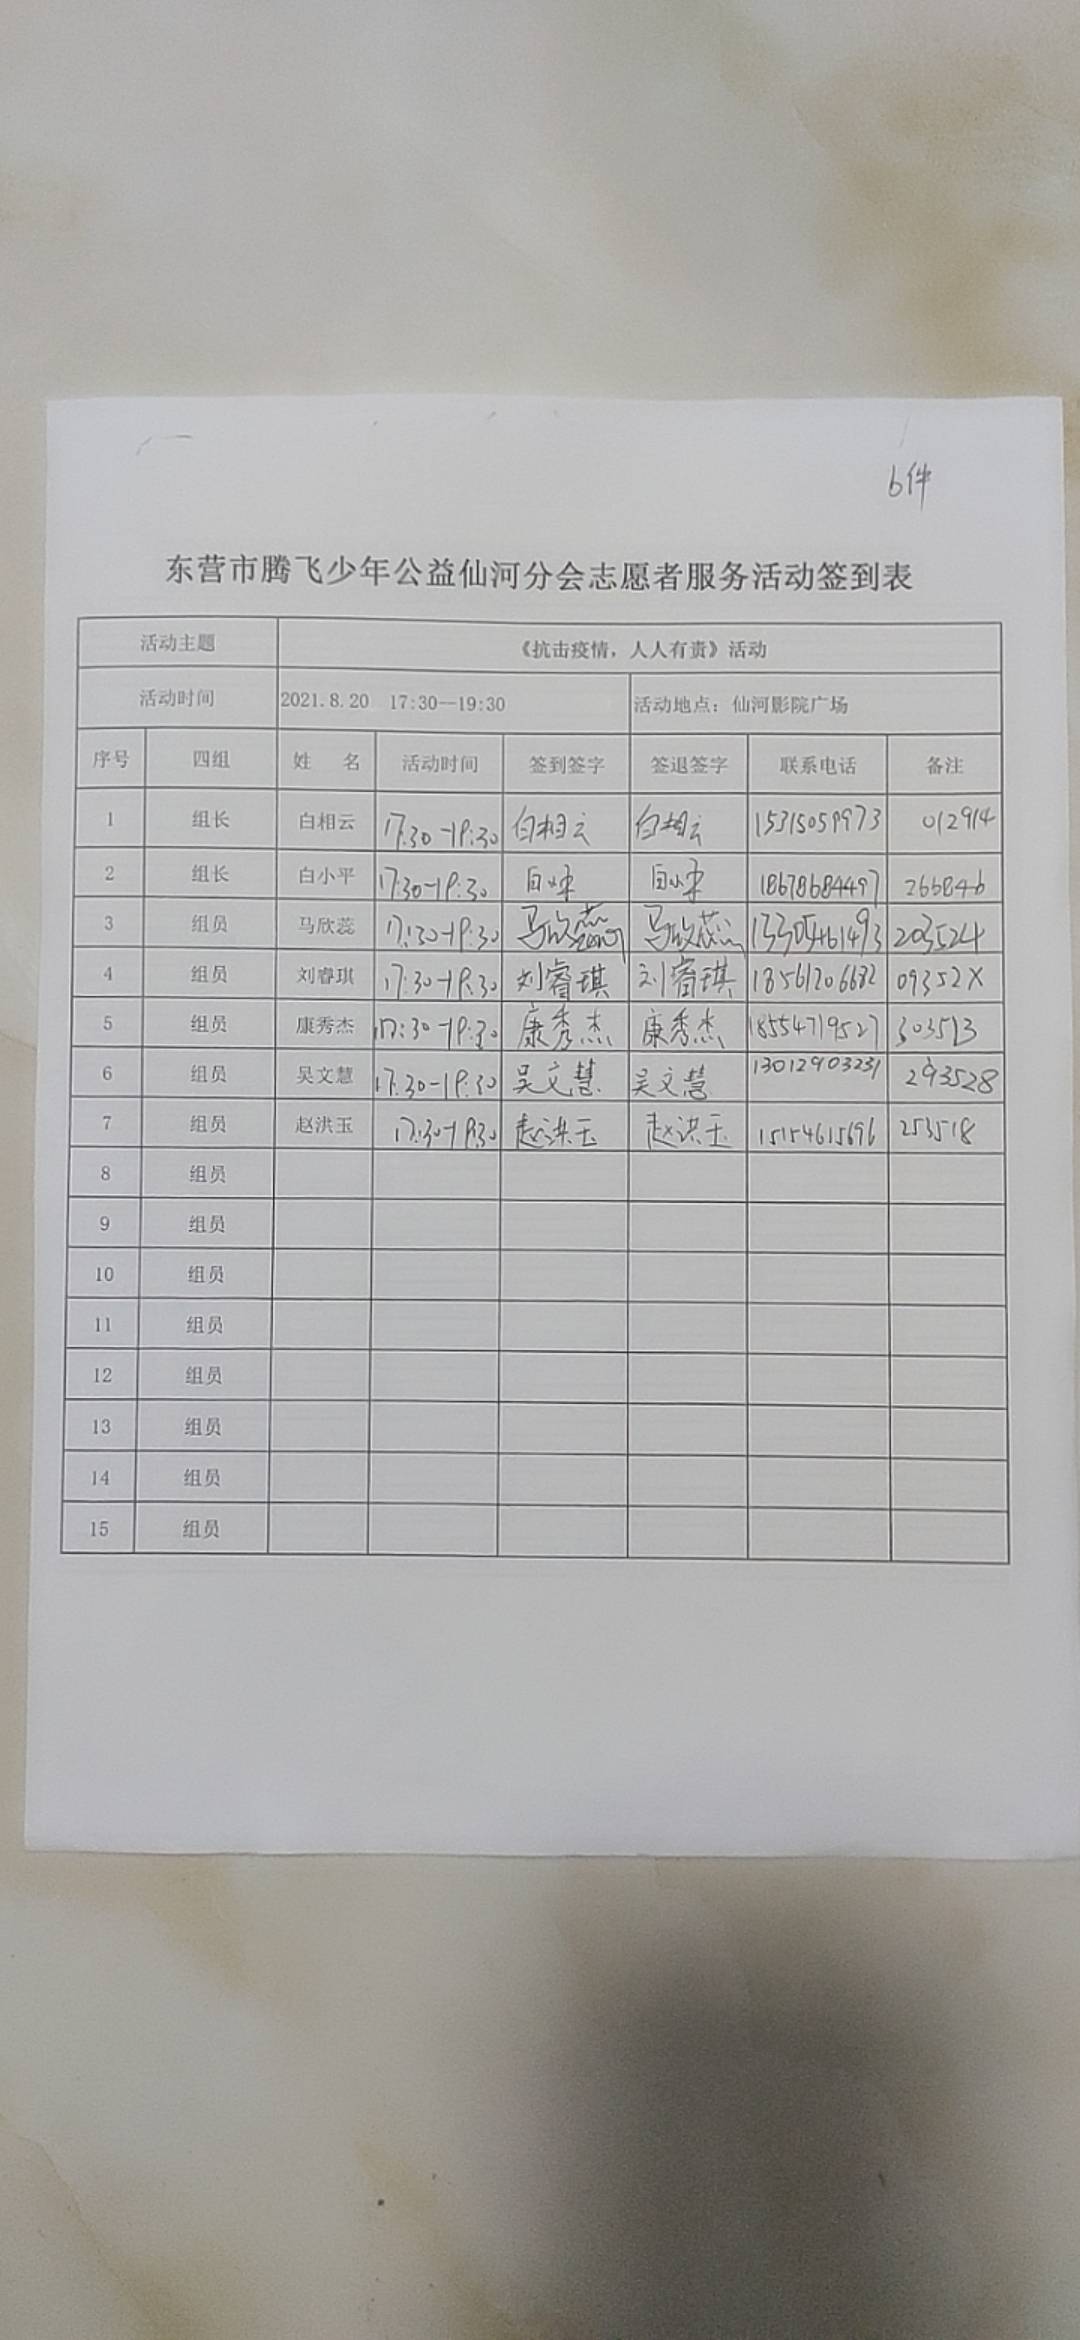 6件
东营市腾飞少年公益仙河分会志愿者服务活动签到表
活动主题 《抗击疫情，人人有责》活动
活动时间 2021.8.20 17:30—19:30 活动地点：仙河影院广场
序号 四组 姓 名 活动时间 签到签字 签退签字 联系电话 备注
1 组长 白相云 17:30-19:30 白相云 白相云 15315059973 012914
2 组长 白小平 17:30-19:30 白小平 白小平 18678684497 266846
3 组员 马欣蕊 17:30-19:30 马欣蕊 马欣蕊 13305461493 203524
4 组员 刘睿琪 17:30-19:30 刘睿琪 刘睿琪 18561206682 09352X
5 组员 康秀杰 17:30-19:30 康秀杰 康秀杰 18554719527 303513
6 组员 吴文慧 17:30-19:30 吴文慧 吴文慧 13012903231 293528
7 组员 赵洪玉 17:30-19:30 赵洪玉 赵洪玉 15154615696 253518
8 组员
9 组员
10 组员
11 组员
12 组员
13 组员
14 组员
15 组员